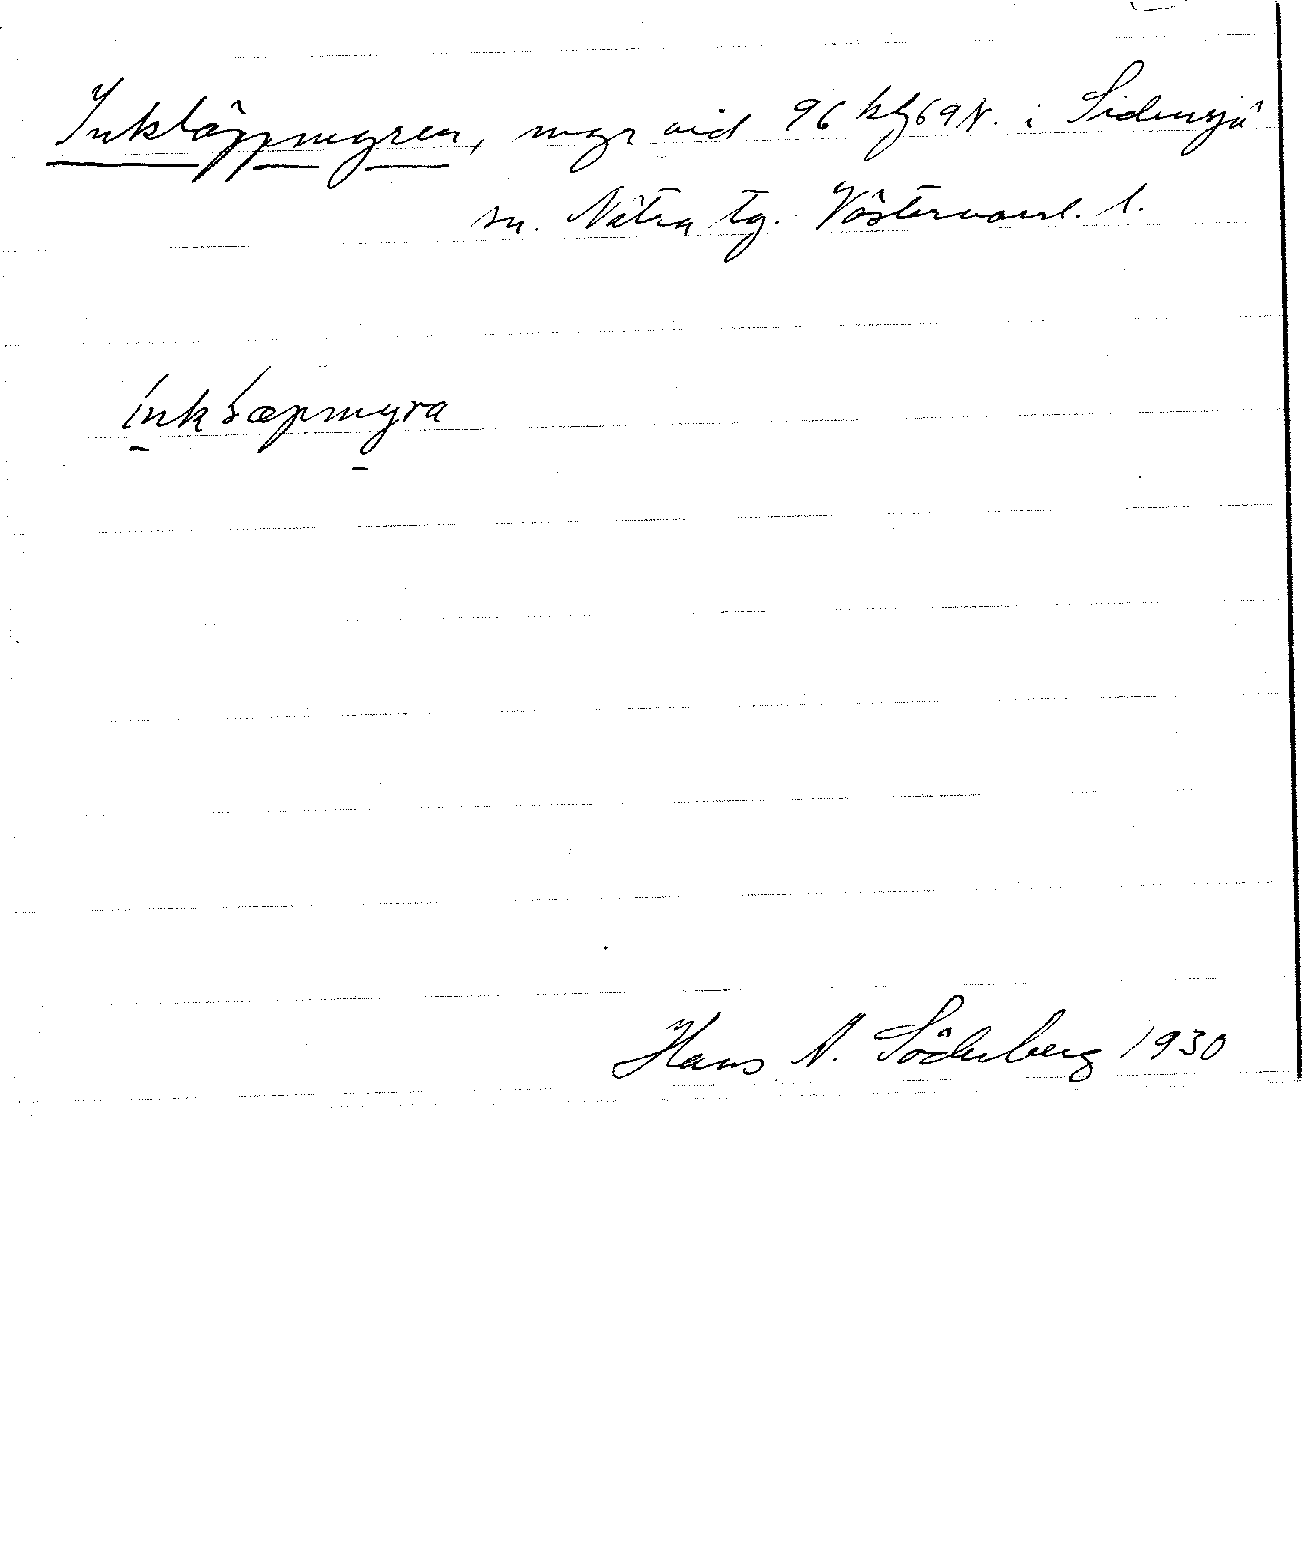 Inkläppmyren, myr vid 96 hf69N. i Sidensjö
sn. Nätra tg. Västernorrl. l.
Inklæpmyra
Hans N. Söderberg 1930